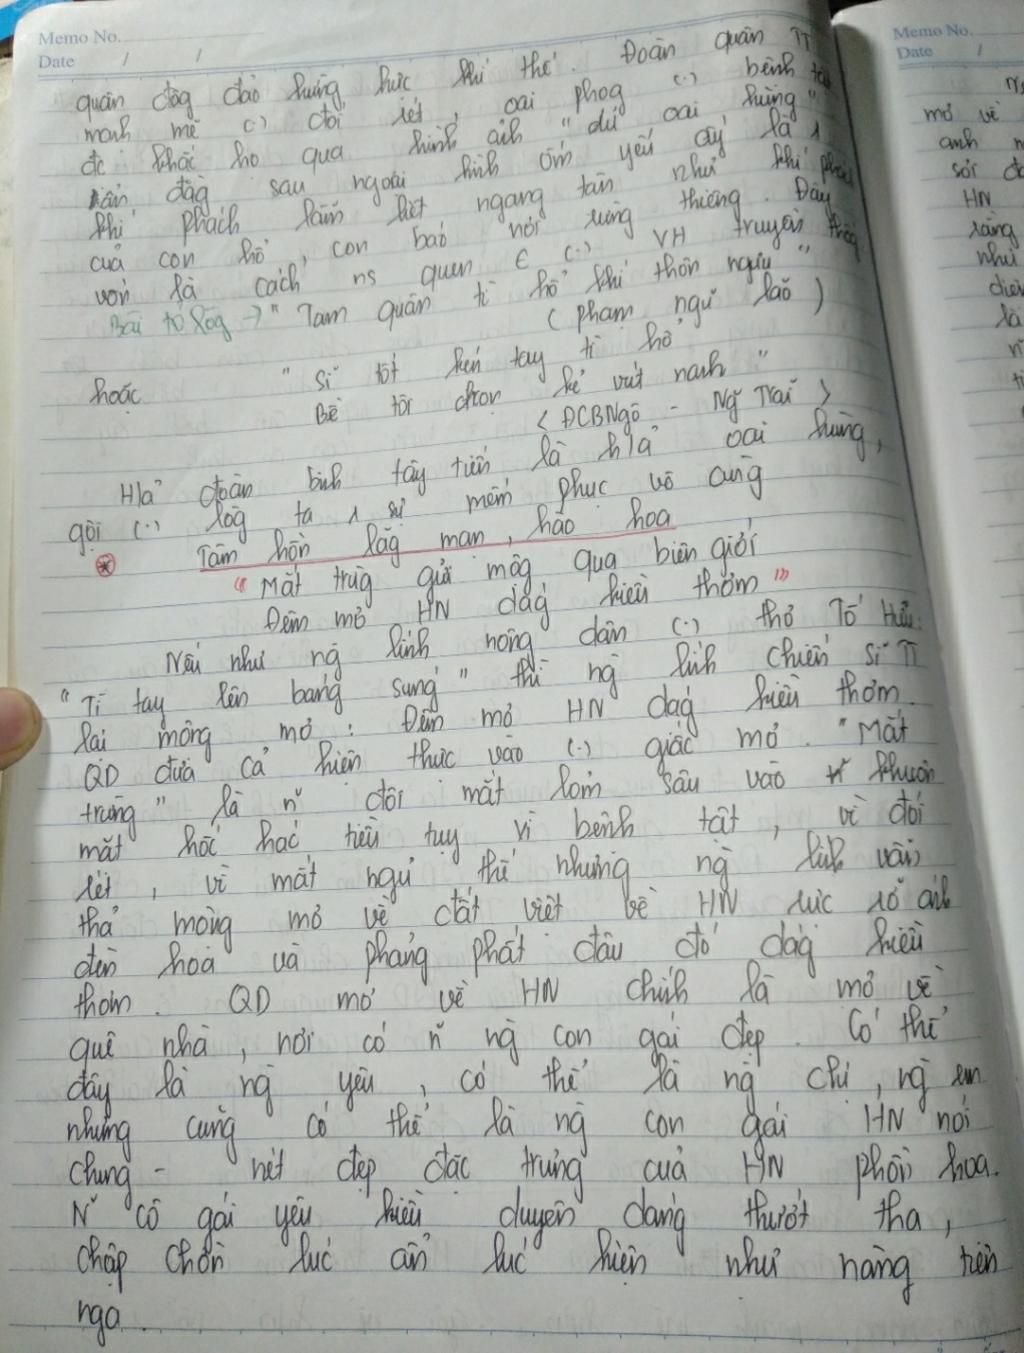 Memo No.
Date / /
quân đôg đảo hừng hực khí thế. Đoàn quân TT
mạnh mẽ (.) đói rét, oai phog (.) bệnh tật
đc khắc hoạ qua hình ảnh "dữ oai hùm"
ẩn đằg sau ngoại hình ốm yếu ấy là 1
khí phách lẫm liệt ngang tàn như khí phách
của con hổ, con báo nơi rừng thiêng. Đây
vốn là cách ns quen € (.) VH truyền thốg
Bài tỏ lòg → "Tam quân tì hổ khí thôn ngưu"
(phạm ngũ lão)
hoặc "Sĩ tốt kén tay tì hổ
Bề tôi chọn kẻ vuốt nanh"
< ĐCBNgô - Ng Trãi >
H/ả đoàn binh tây tiến là h/ả oai hùng,
gợi (.) lòg ta 1 sự mến phục vô cùng
* Tâm hồn lãg mạn, hào hoa
"Mắt trừg gửi mộg qua biên giới
Đêm mơ HN dág kiều thơm"
Nếu như ng lính nông dân (.) thơ Tố Hữu:
"Tì tay lên báng súng" thì ng lính chiến sĩ TT
lại mộng mơ: Đêm mơ HN dág kiều thơm.
QD đưa cả hiện thực vào (.) giấc mơ. "Mắt
trừng" là n~ đôi mắt lõm sâu vào khuôn
mặt hốc hác tiều tụy vì bệnh tật, vì đói
rét, vì mất ngủ thế nhưng ng lính vẫn
thả mộng mơ về đất việt về HN rực rỡ ánh
đèn hoa và phảng phất đâu đó dág kiều
thơm. QD mơ về HN chính là mơ về
quê nhà, nơi có n~ ng con gái đẹp. Có thể
đây là ng yêu, có thể là ng chị, ng em
nhưng cũng có thể là ng con gái HN nói
chung - nét đẹp đặc trưng của HN phồn hoa.
N~ cô gái yêu kiều duyên dáng thướt tha,
chập chờn lúc ẩn lúc hiện như nàng tiên
nga.
Memo No.
Date /
mơ về
anh
HN
như
là